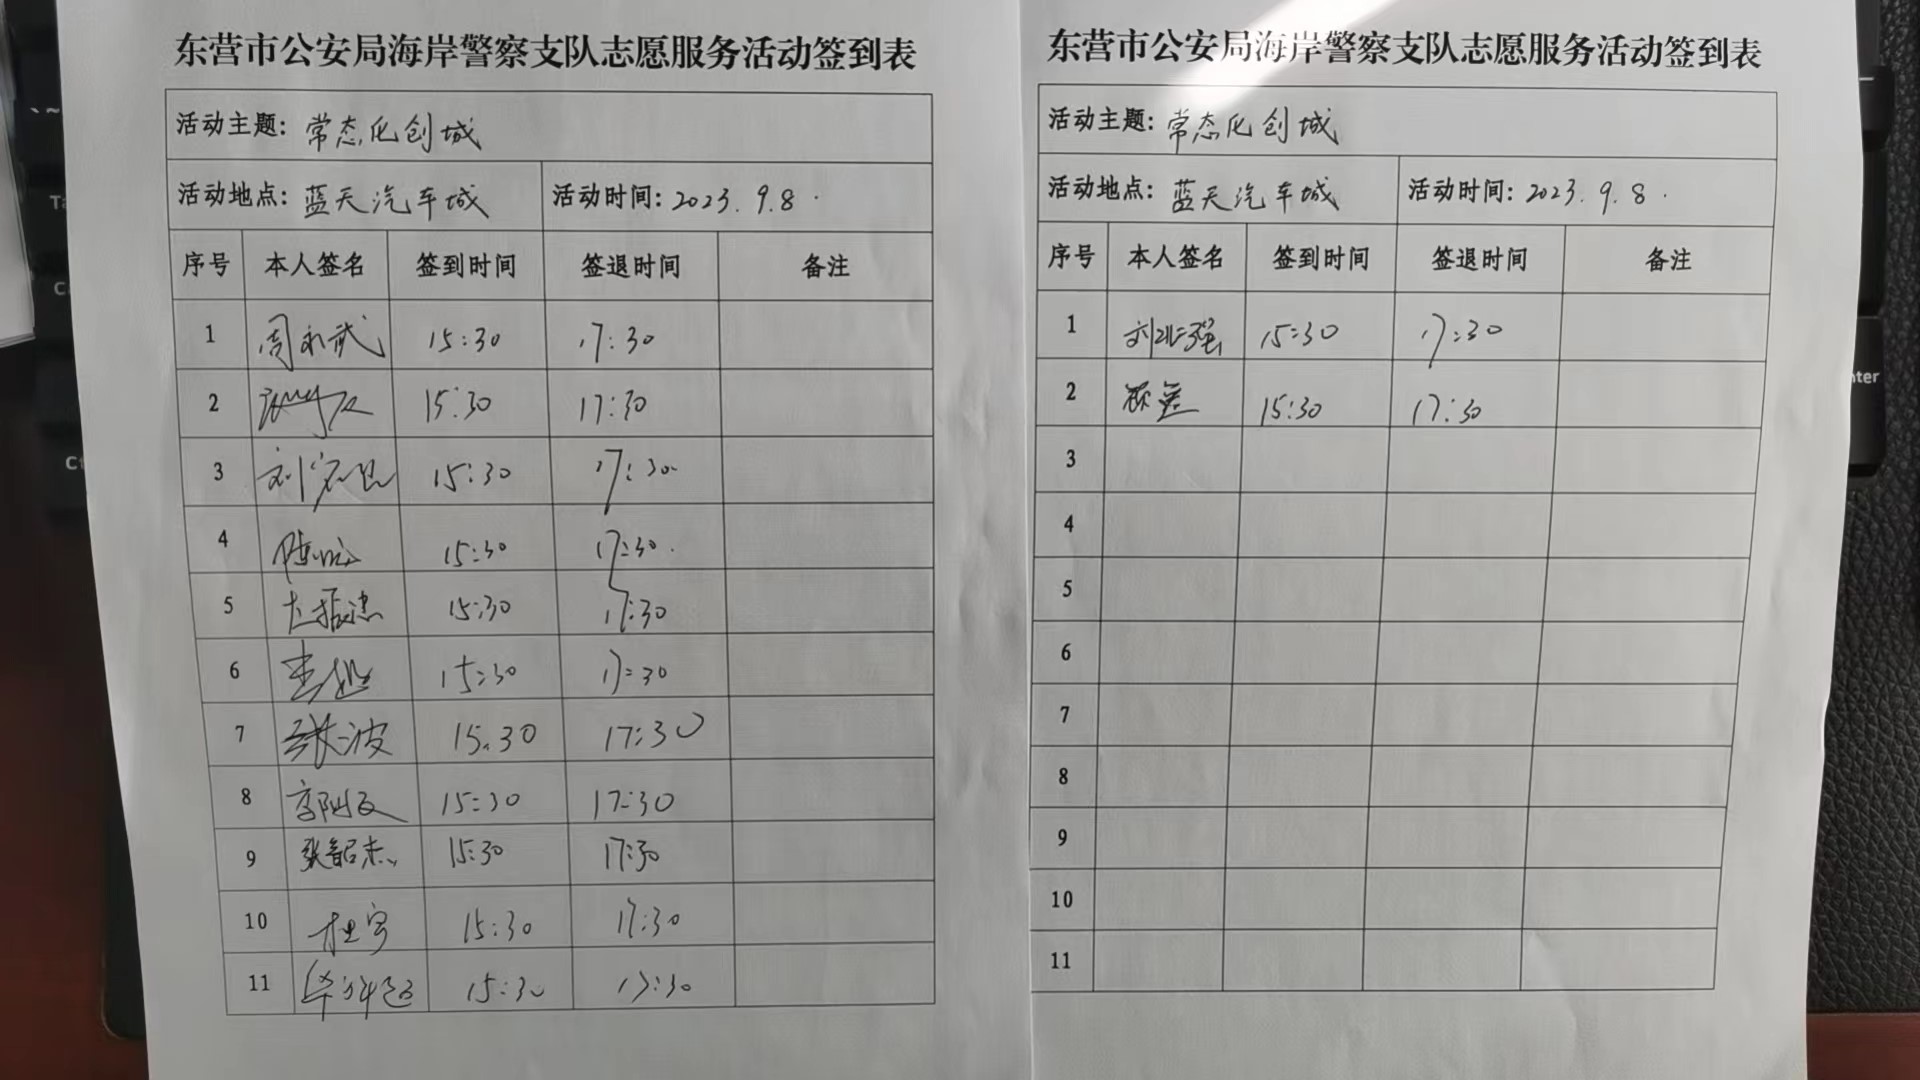 东营市公安局海岸警察支队志愿服务活动签到表
活动主题: 常态化创城
活动地点: 蓝天汽车城 活动时间: 2023.9.8.
序号 本人签名 签到时间 签退时间 备注
1 周永武 15:30 17:30
2 15:30 17:30
3 15:30 17:30
4 15:30 17:30.
5 15:30 17:30
6 15:30 17:30
7 张波 15:30 17:30
8 15:30 17:30
9 张韶杰 15:30 17:30
10 杜宇 15:30 17:30
11 15:30 17:30
东营市公安局海岸警察支队志愿服务活动签到表
活动主题: 常态化创城
活动地点: 蓝天汽车城 活动时间: 2023.9.8.
序号 本人签名 签到时间 签退时间 备注
1 15:30 17:30
2 15:30 17:30
3
4
5
6
7
8
9
10
11